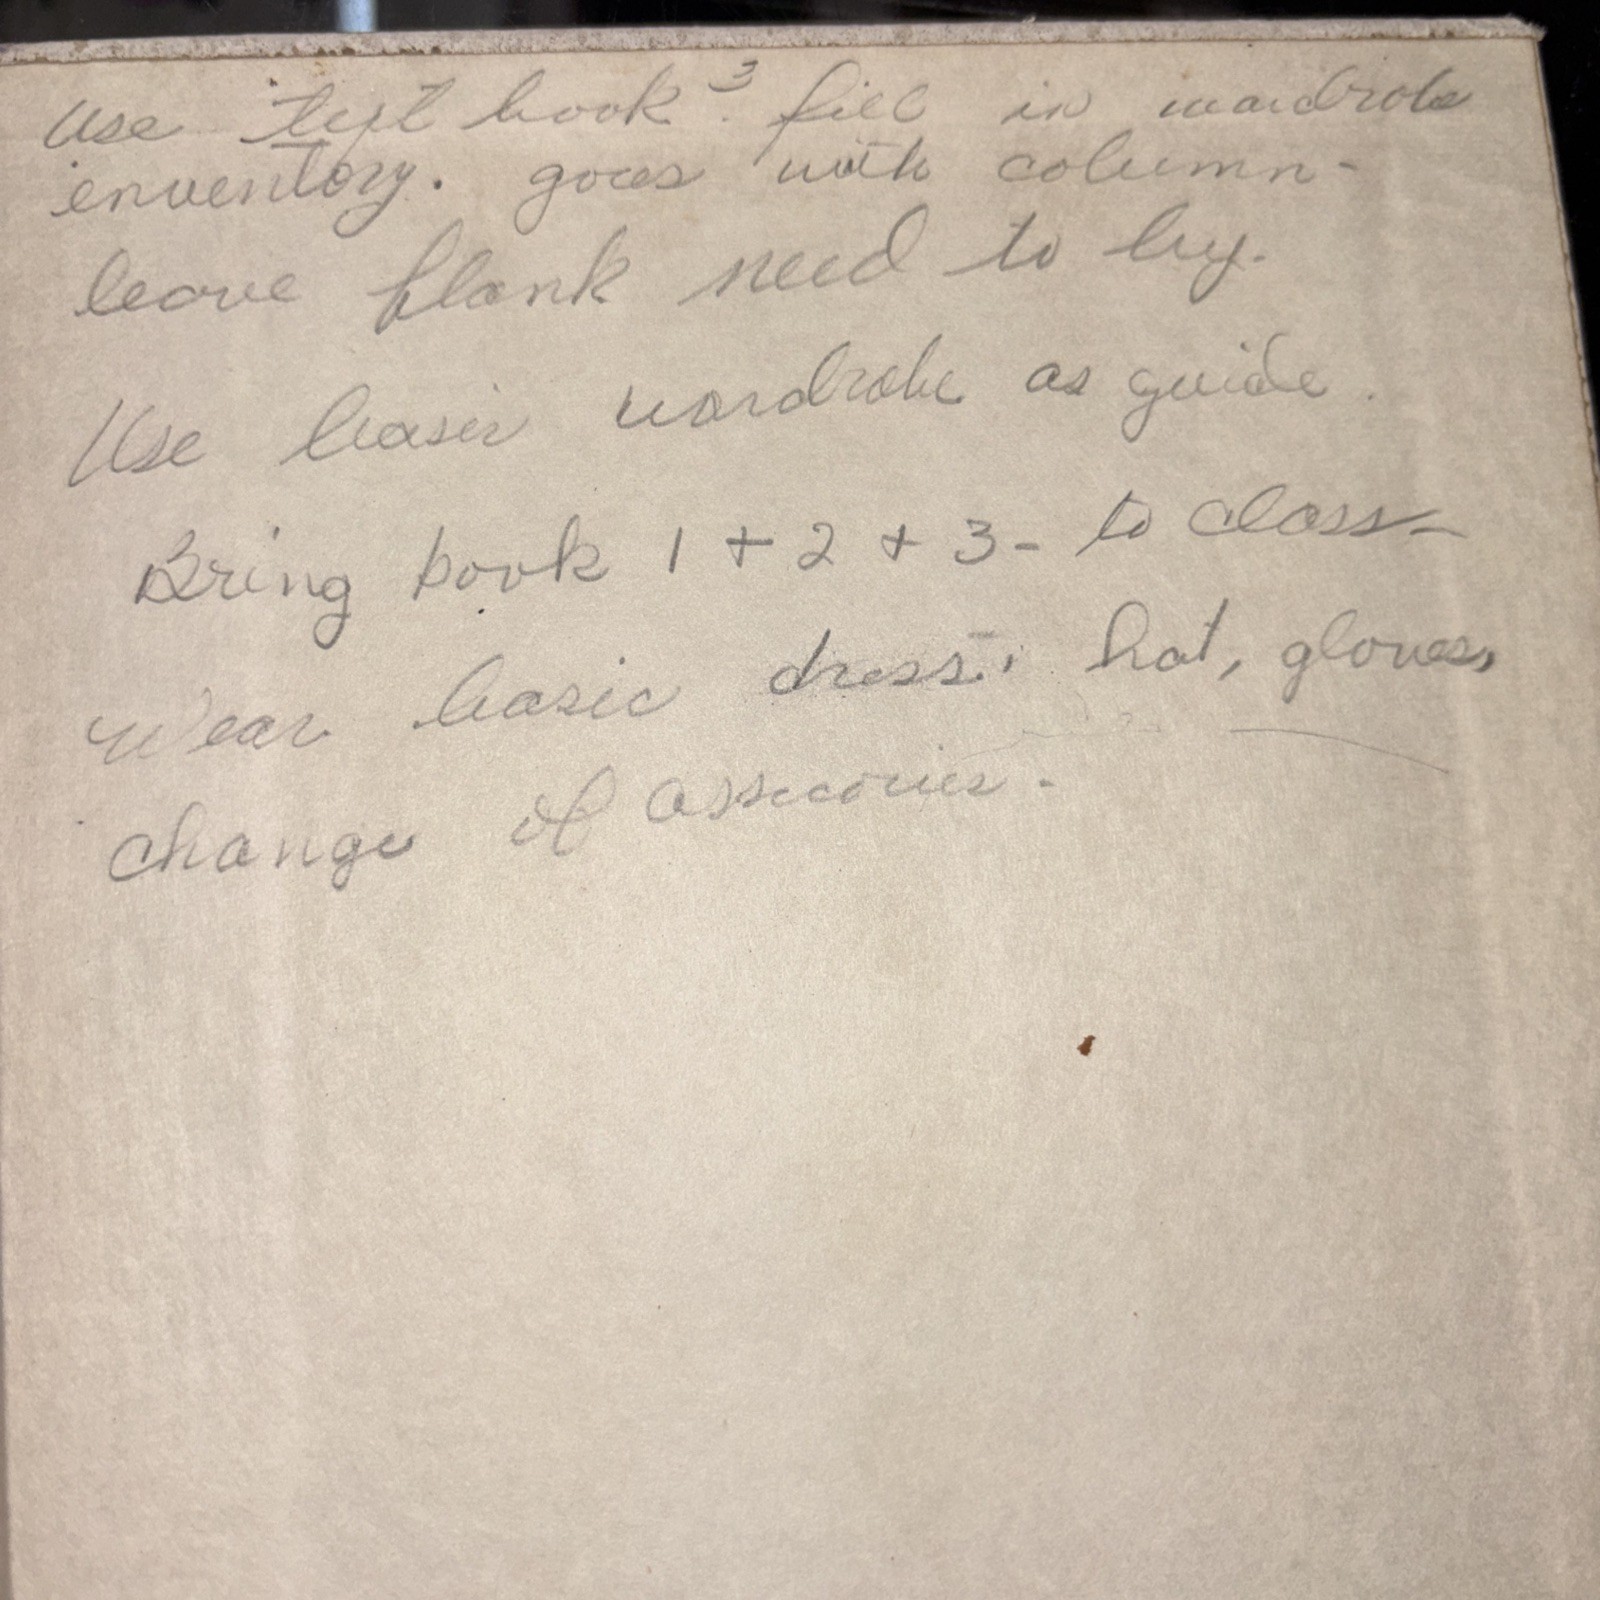 Use text book 3. fill in wardrobe
enventory. goes with column -
leave blank need to buy.
Use basic wardrobe as guide.
Bring book 1 + 2 + 3 - to class -
Wear basic dress. hat, gloves,
change of assecories -